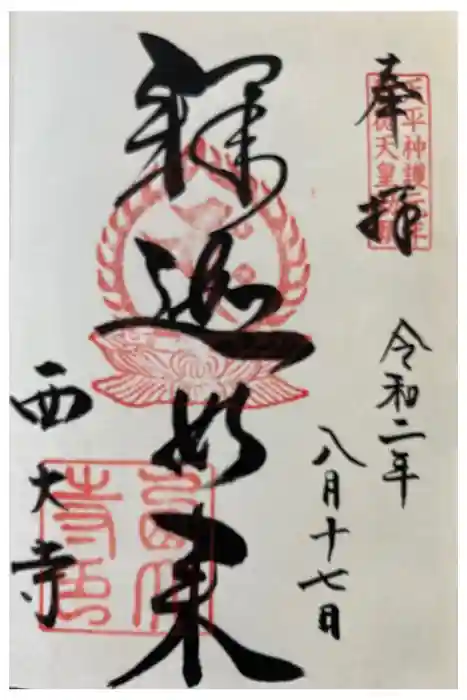 奉拝
天平神護元年
称徳天皇勅願
令和二年
八月十七日
釋迦如来
西大寺